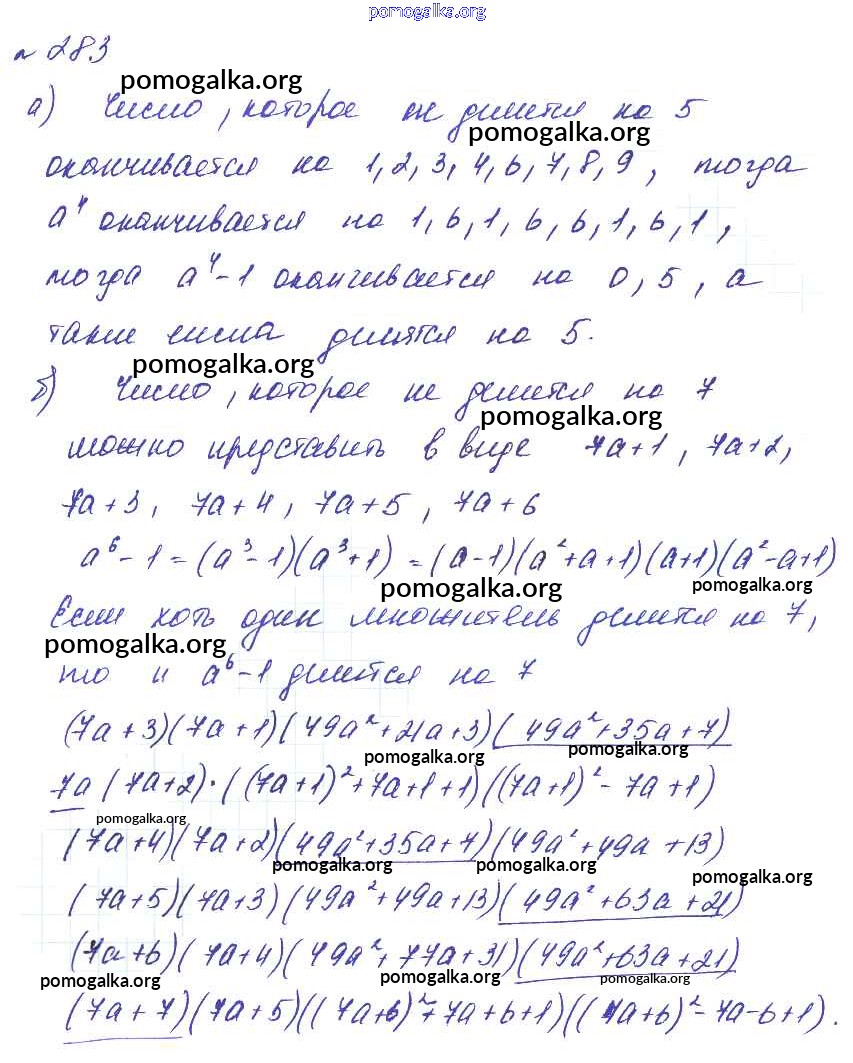 pomogalka.org
№ 283
pomogalka.org
а) Число, которое не делится на 5
pomogalka.org
оканчивается на 1, 2, 3, 4, 6, 7, 8, 9, тогда
a⁴ оканчивается на 1, 6, 1, 6, 6, 1, 6, 1,
тогда a⁴-1 оканчивается на 0, 5, а
такие числа делятся на 5.
pomogalka.org
б) Число, которое не делится на 7
pomogalka.org
можно представить в виде 7a+1, 7a+2,
7a+3, 7a+4, 7a+5, 7a+6
a⁶-1=(a³-1)(a³+1)=(a-1)(a²+a+1)(a+1)(a²-a+1)
pomogalka.org pomogalka.org
Если хоть один множитель делится на 7,
pomogalka.org
то и a⁶-1 делится на 7
(7a+3)(7a+1)(49a²+21a+3)(49a²+35a+7)
pomogalka.org pomogalka.org
7a(7a+2)·((7a+1)²+7a+1+1)((7a+1)²-7a+1)
pomogalka.org
(7a+4)(7a+2)(49a²+35a+7)(49a²+49a+13)
pomogalka.org pomogalka.org pomogalka.org
(7a+5)(7a+3)(49a²+49a+13)(49a²+63a+21)
(7a+6)(7a+4)(49a²+77a+31)(49a²+63a+21)
pomogalka.org pomogalka.org pomogalka.org
(7a+7)(7a+5)((7a+6)²+7a+6+1)((7a+6)²-7a-6+1).